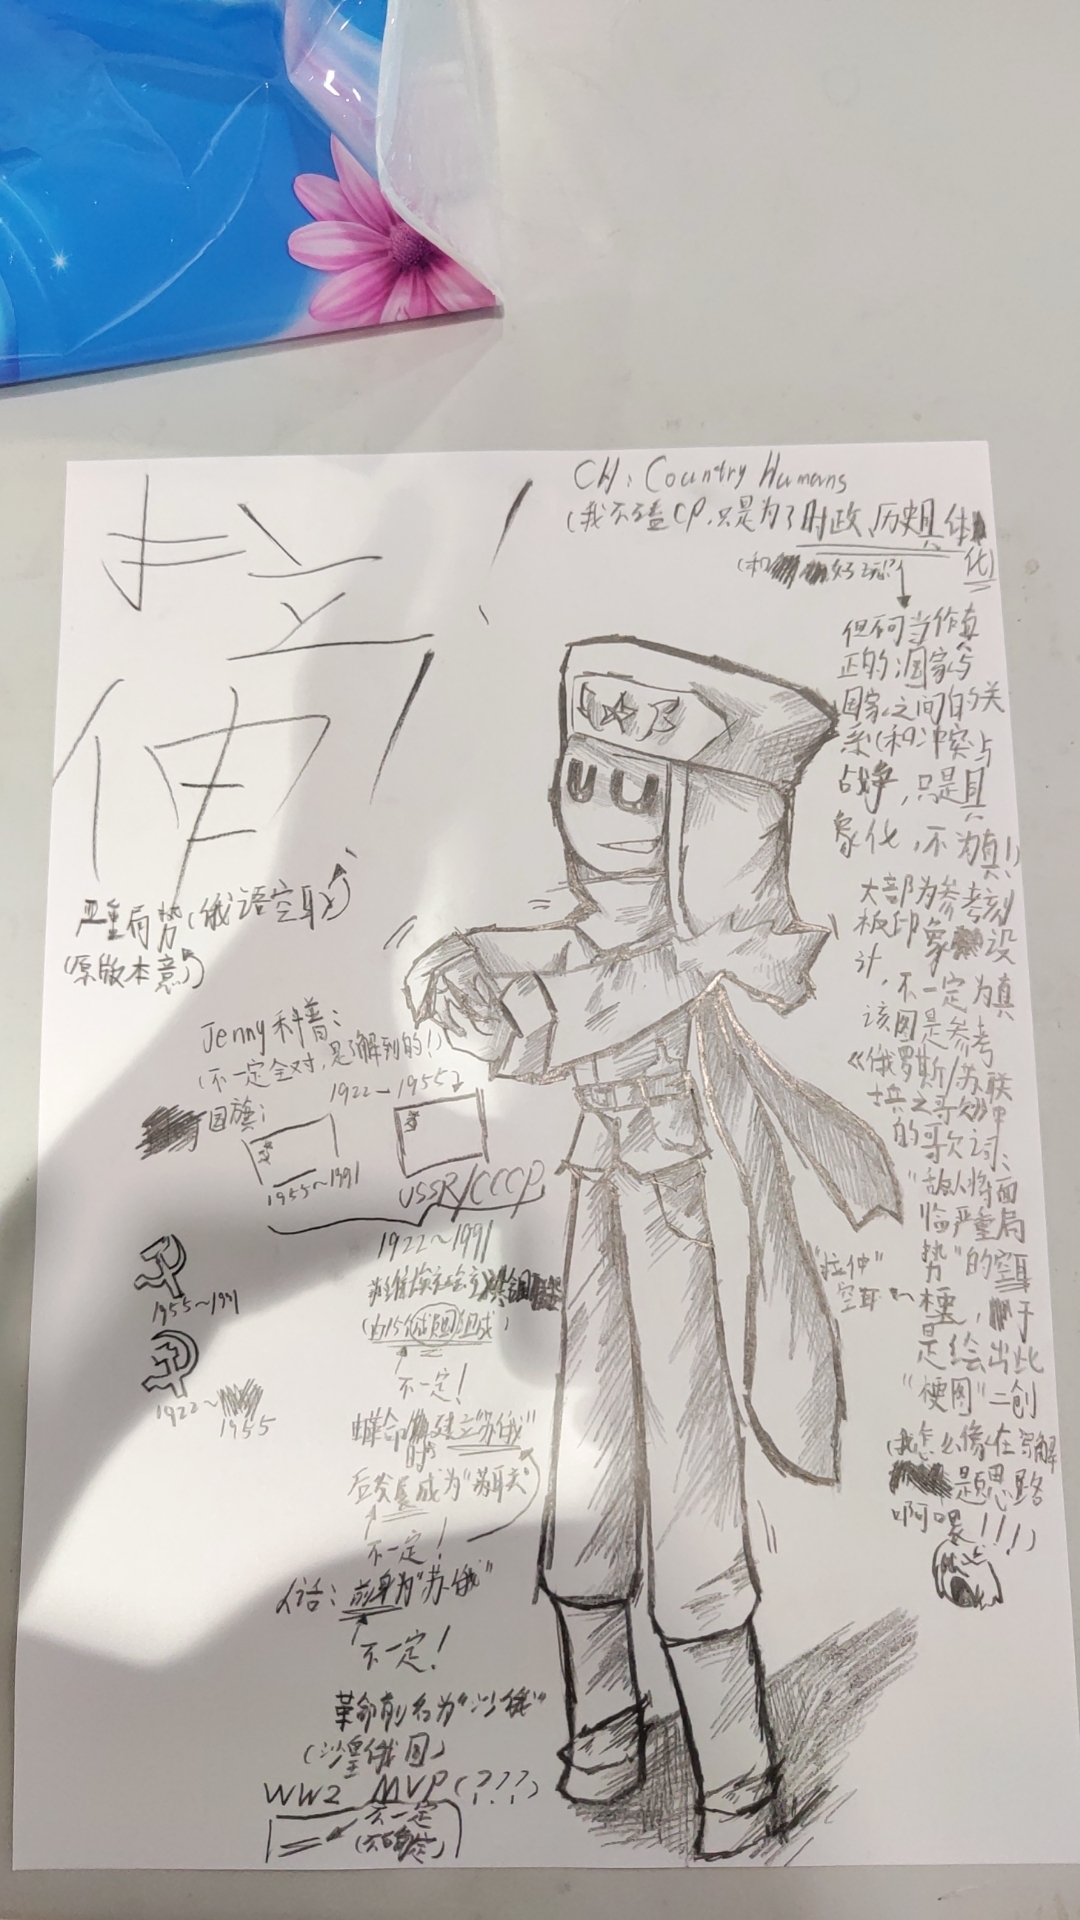 拉
伸
！
严重局势(俄语空耳)
(原版本意)
CH: Country Humans
(我不磕CP,只是为了时政、历史具体化)
(和 好玩?)
但不可当作真
正的国家与
国家之间的关
系(和冲突与
战争,只是具
象化,不为真!)
大部为参考刻
板印象设
计,不一定为真
该图是参考
《俄罗斯/苏联
士兵之歌》中
的歌词:
"敌人将面
临严重局
势"的空耳
"拉伸"
空耳
梗,于
是绘出此
"梗图"二创
(我怎么像在写解
题思路
啊喂!!!)
Jenny科普:
(不一定全对,是了解到的!)
1922~1955
国旗:
1955~1991
USSR/CCCP
1922~1991
(由15个 国组成)
不一定!
1955~1991
1922~
1955
革命 建立"苏俄"
时
后发展成为"苏联"
不一定!
人话:前身为"苏俄"
不一定!
革命前名为"沙俄"
(沙皇俄国)
WW2 MVP(???)
不一定
(不确定)